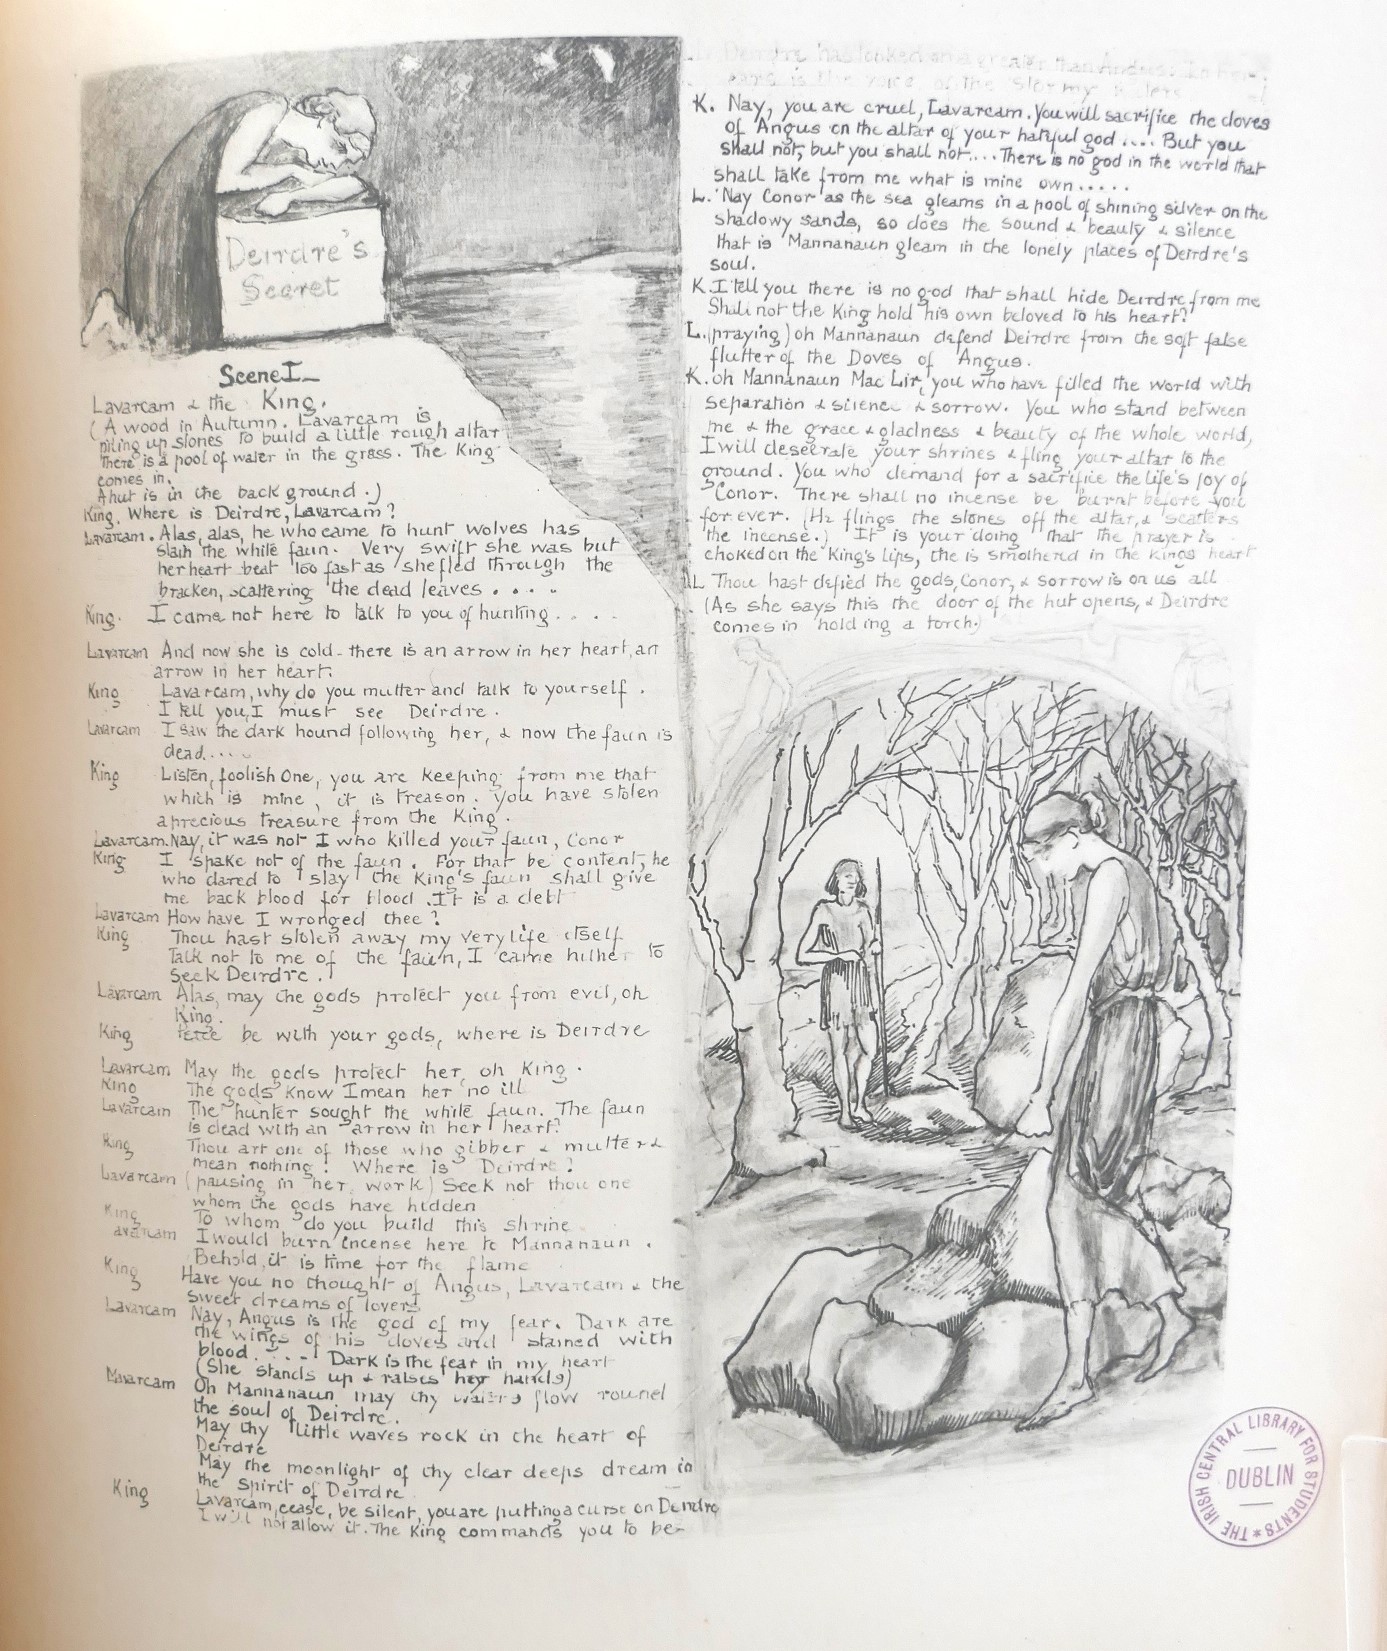 Deirdre's
Secret
Scene I
Lavarcam & the King.
(A wood in Autumn. Lavarcam is
piling up stones to build a little rough altar
There is a pool of water in the grass. The King
comes in.
A hut is in the back ground.)
King. Where is Deirdre, Lavarcam?
Lavarcam. Alas, alas, he who came to hunt wolves has
slain the while faun. Very swift she was but
her heart beat too fast as she fled through the
bracken, scattering the dead leaves . . . .
King. I came not here to talk to you of hunting . . . .
Lavarcam And now she is cold - there is an arrow in her heart, an
arrow in her heart.
King Lavarcam, why do you mutter and talk to yourself.
I tell you, I must see Deirdre.
Lavarcam I saw the dark hound following her, & now the faun is
dead....
King Listen, foolish One, you are keeping from me that
which is mine, it is treason. you have stolen
a precious treasure from the King.
Lavarcam. Nay, it was not I who killed your faun, Conor
King I spake not of the faun. For that be content, he
who dared to slay the King's faun shall give
me back blood for blood. It is a debt
Lavarcam How have I wronged thee?
King Thou hast stolen away my very life itself
Talk not to me of the faun, I came hither to
Seek Deirdre.
Lavarcam Alas, may the gods protect you from evil, oh
King.
King be with your gods, where is Deirdre
Lavarcam May the gods protect her, oh King.
King The gods know I mean her no ill
Lavarcam The hunter sought the while faun. The faun
is dead with an arrow in her heart.
King Thou art one of those who gibber & mutter &
mean nothing! Where is Deirdre?
Lavarcam (pausing in her work) Seek not thou one
whom the gods have hidden
King To whom do you build this shrine
avarcam I would burn incense here to Mannanaun.
Behold, it is time for the flame
King Have you no thought of Angus, Lavarcam & the
sweet dreams of lovers
Lavarcam Nay, Angus is the god of my fear. Dark are
the wings of his doves and stained with
blood . . . . Dark is the fear in my heart
(She stands up & raises her hands)
Lavarcam Oh Mannanaun may thy waters flow round
the soul of Deirdre.
May thy little waves rock in the heart of
Deirdre
May the moonlight of thy clear deeps dream in
the spirit of Deirdre
King Lavarcam, cease, be silent, you are putting a curse on Deirdre
I will not allow it. The King commands you to be-
L. Deirdre has looked on a greater than Andus. In her
ears is the voice of the stormy
K. Nay, you are cruel, Lavarcam. You will sacrifice the doves
of Angus on the altar of your hateful god .... But you
shall not, but you shall not.... There is no god in the world that
shall take from me what is mine own.....
L. Nay Conor as the sea gleams in a pool of shining silver on the
shadowy sands, so does the sound & beauty & silence
that is Mannanaun gleam in the lonely places of Deirdre's
soul.
K. I tell you there is no god that shall hide Deirdre from me
Shall not the King hold his own beloved to his heart?
L. (praying) oh Mannanaun defend Deirdre from the soft false
flutter of the Doves of Angus.
K. oh Mannanaun Mac Lir, you who have filled the world with
separation & silence & sorrow. You who stand between
me & the grace & gladness & beauty of the whole world,
I will desecrate your shrines & fling your altar to the
ground. You who demand for a sacrifice the life's joy of
Conor. There shall no incense be burnt before you
for ever. (He flings the stones off the altar, & scatters
the incense.) It is your doing that the prayer is
choked on the King's lips, the is smothered in the Kings heart
L Thou hast defied the gods, Conor, & sorrow is on us all
(As she says this the door of the hut opens, & Deirdre
comes in holding a torch.)
THE IRISH CENTRAL LIBRARY FOR STUDENTS *
DUBLIN